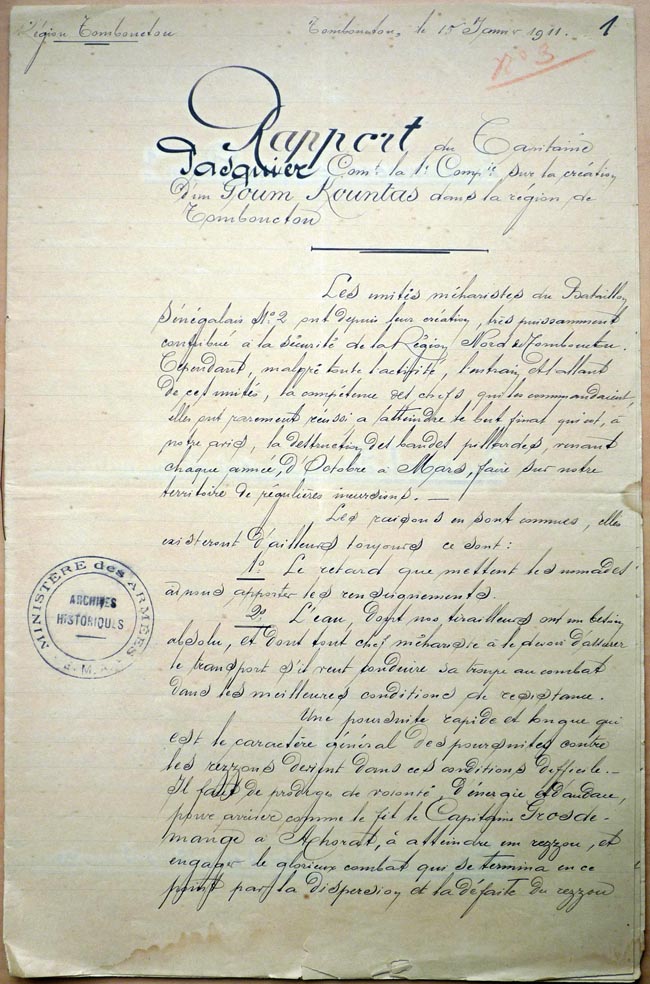 Région Tombouctou
Tombouctou, le 15 Janvr 1911.
1
No 3
Rapport du Capitaine
Pasquier Comt la 1e Compie sur la création
d'un Goum Kountas dans la région de
Tombouctou
Les unités méharistes du Bataillon
Sénégalais No 2 ont depuis leur création, très puissamment
contribué à la sécurité de la Région Nord de Tombouctou.
Cependant, malgré toute l'activité, l'entrain, et l'allant
de ces unités, la compétence des chefs, qui les commandaient,
elles ont rarement réussi a atteindre le but final qui est, à
notre avis, la destruction des bandes pillardes, venant
chaque année, d'Octobre à Mars, faire sur notre
territoire de régulières incursions. —
Les raisons en sont connues, elles
existeront d'ailleurs toujours ce sont :
1o Le retard que mettent les nomades
à nous apporter les renseignements.
2o L'eau, dont nos tirailleurs ont un besoin
absolu, et dont tout chef méhariste à le devoir d'assurer
le transport s'il veut conduire sa troupe au combat
dans les meilleures conditions de resistance.
Une poursuite rapide et longue qui
est le caractère général des poursuites contre
les rezzous devient dans ces conditions difficile. —
Il faut de prodiges de volonté, d'énergie et d'audace,
pour arriver comme le fit le Capitaine Grosde-
mange à Achorat, à atteindre un rezzou, et
engager le glorieux combat qui se termina en ce
point par la dispersion et la défaite du rezzou
MINISTÈRE des ARMÉES
ARCHIVES
HISTORIQUES